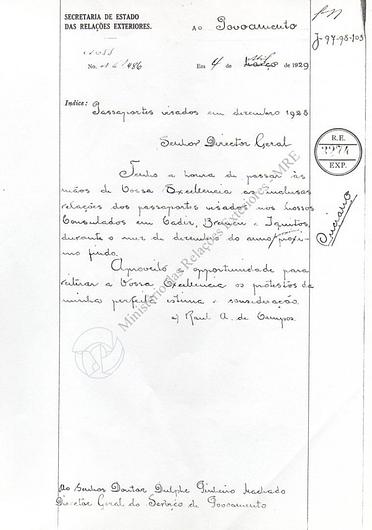 SECRETARIA DE ESTADO
DAS RELAÇÕES EXTERIORES.
Ao Povoamento
J-97-98-103
No. 486
Em 4 de de 1929
Indice: Passaportes visados em dezembro 1928
Senhor Director Geral
R.E.
EXP.
Tenho a honra de passar ás
mãos de Vossa Excellencia as inclusas
relações dos passaportes visados nos nossos
Consulados em Cadiz, e Iquitos,
durante o mez de dezembro do anno proxi-
mo findo.
Aproveito a opportunidade para
reiterar a Vossa Excellencia os protestos da
minha perfeita estima e consideração.
a) Raul A. de Campos
Ministério das Relações Exteriores - MRE
Ao Senhor Doutor Dulphe Pinheiro Machado
Director Geral do Serviço de Povoamento